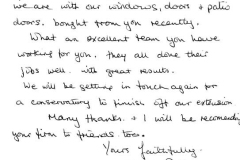 we are with our windows, doors & patio
doors. bought from you recently.
What an excellent team you have
working for you. they all done their
jobs well. with great results.
We will be getting in touch again for
a conservatory to finish off our extension
Many thanks. & I will be recomending
your firm to friends too.
Yours faithfully.